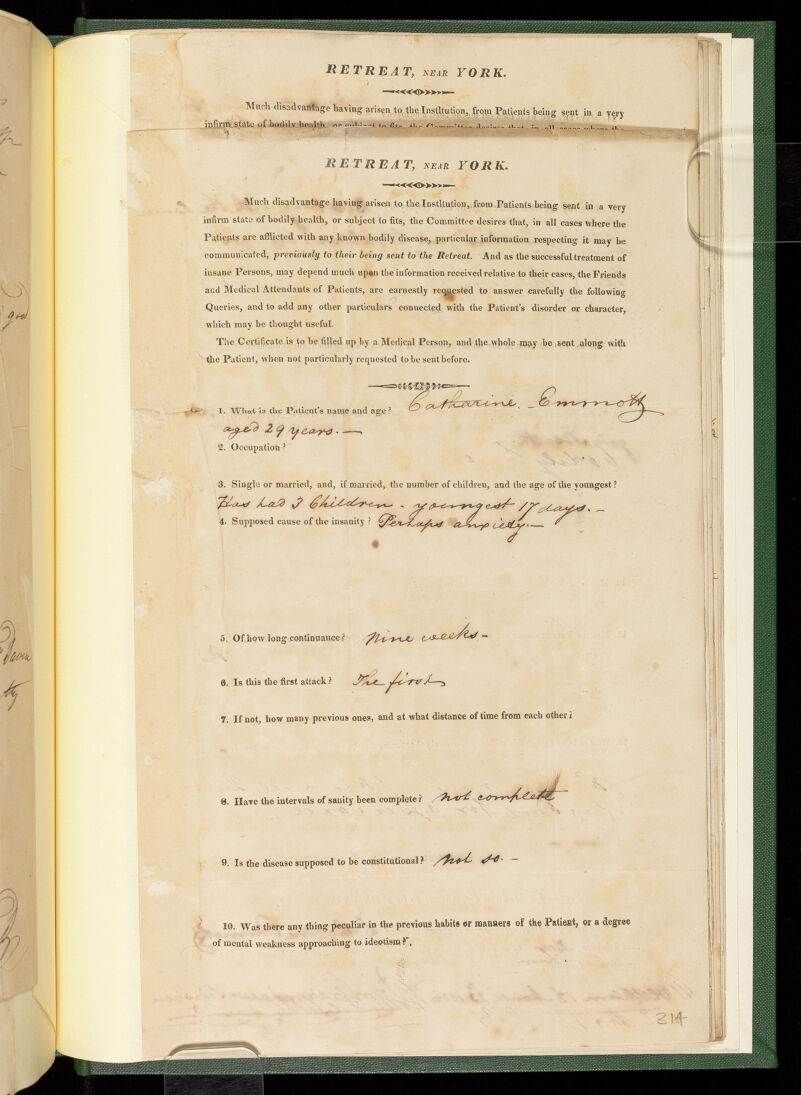 RETREAT, NEAR YORK.
Much disadvantage having arisen to the Institution, from Patients being sent in a very
infirm state of bodily health, or subject to fits, the Committee desires that, in all cases where the
RETREAT, NEAR YORK.
Much disadvantage having arisen to the Institution, from Patients being sent in a very
infirm state of bodily health, or subject to fits, the Committee desires that, in all cases where the
Patients are afflicted with any known bodily disease, particular information respecting it may be
communicated, previously to their being sent to the Retreat. And as the successful treatment of
insane Persons, may depend much upon the information received relative to their cases, the Friends
and Medical Attendants of Patients, are earnestly requested to answer carefully the following
Queries, and to add any other particulars connected with the Patient's disorder or character,
which may be thought useful.
The Certificate is to be filled up by a Medical Person, and the whole may be sent along with
the Patient, when not particularly requested to be sent before.
1. What is the Patient's name and age? Catharine. - Emmott
aged 29 years. —
2. Occupation?
3. Single or married, and, if married, the number of children, and the age of the youngest?
Has had 3 Children - youngest 17 days. -
4. Supposed cause of the insanity? Perhaps anxiety. —
5. Of how long continuance? Nine weeks -
6. Is this the first attack? The first
7. If not, how many previous ones, and at what distance of time from each other?
8. Have the intervals of sanity been complete? Not complete
9. Is the disease supposed to be constitutional? Not so. -
10. Was there any thing peculiar in the previous habits or manners of the Patient, or a degree
of mental weakness approaching to ideotism?
314